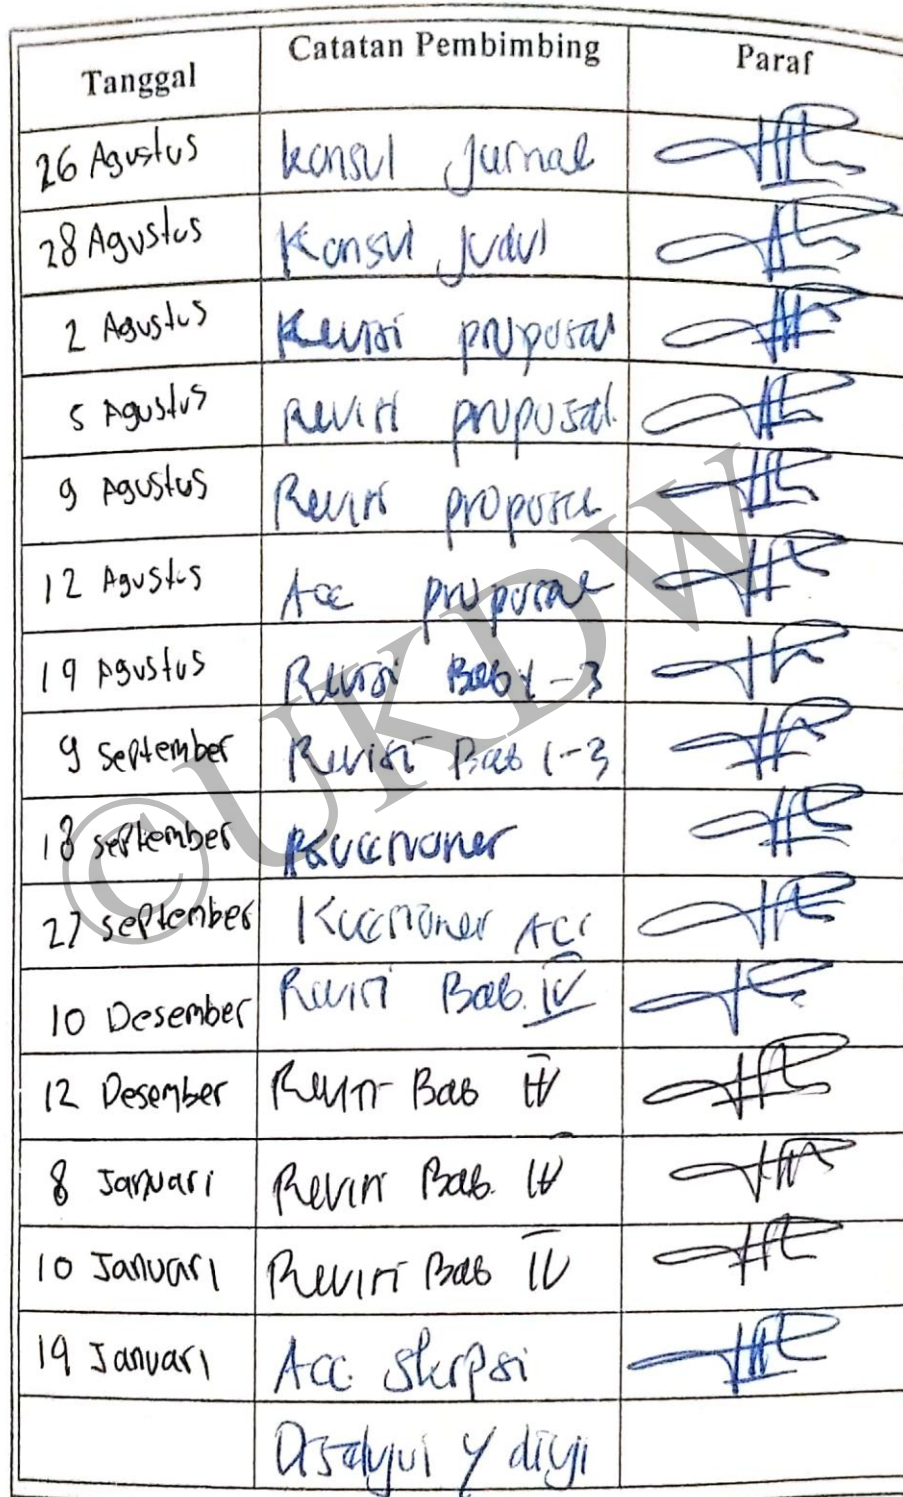 Tanggal Catatan Pembimbing Paraf
26 Agustus Konsul Jurnal
28 Agustus Konsul Judul
2 Agustus Revisi proposal
5 Agustus Revisi proposal
9 Agustus Revisi proposal
12 Agustus Acc proposal
19 Agustus Revisi Bab 1-3
9 September Revisi Bab 1-3
18 September Kuesioner
27 September Kuesioner Acc
10 Desember Revisi Bab. IV
12 Desember Revisi Bab IV
8 Januari Revisi Bab. IV
10 Januari Revisi Bab IV
19 Januari Acc. Skripsi
Disetujui y diuji
©UKDW